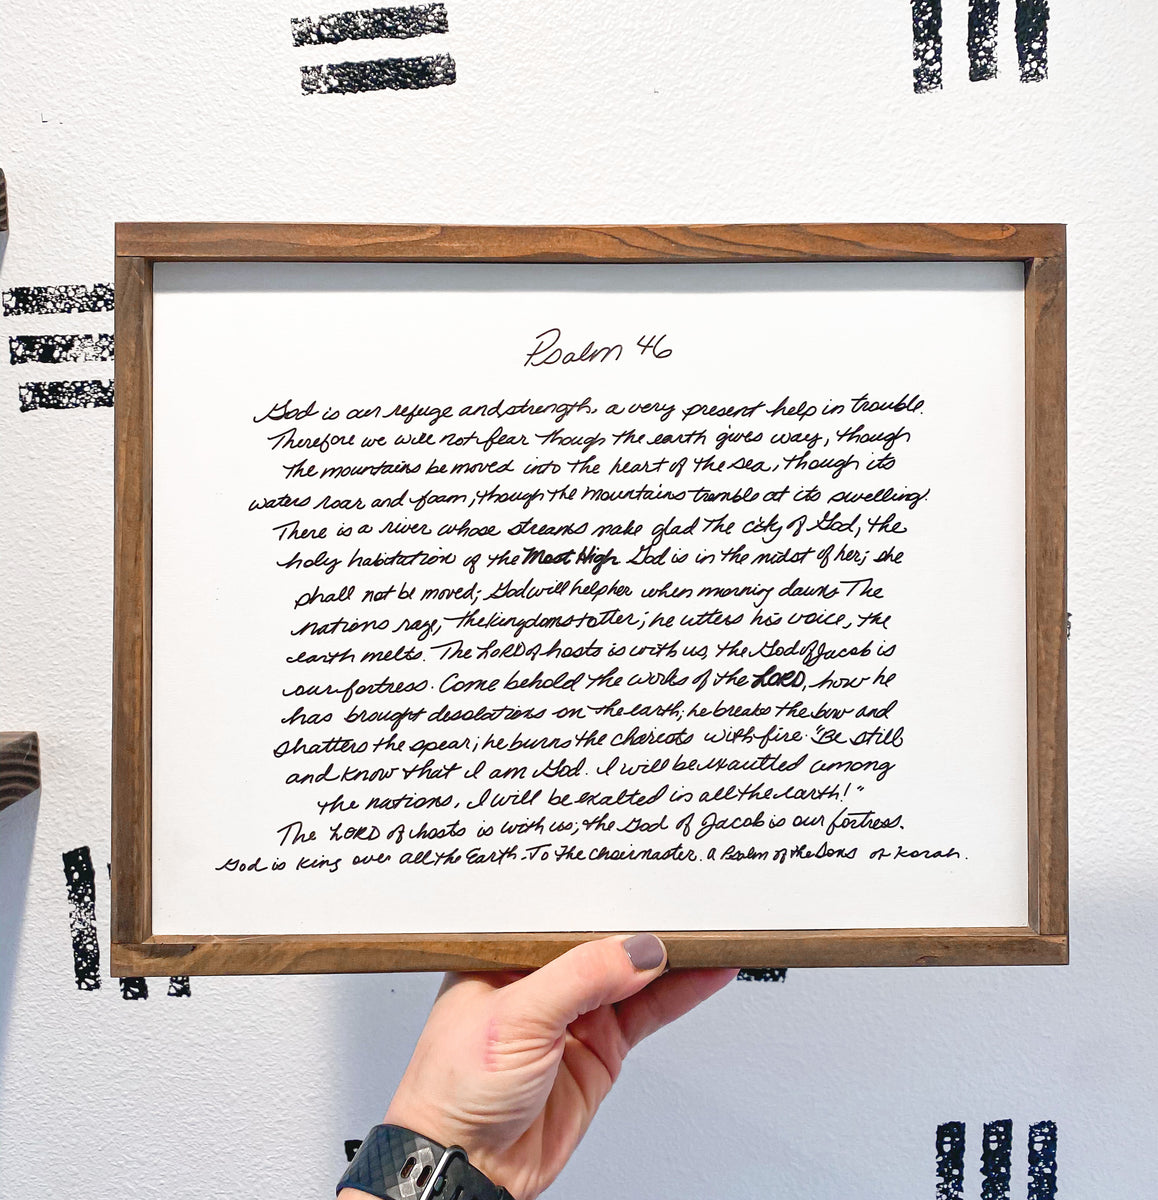 Psalm 46
God is our refuge and strength, a very present help in trouble.
Therefore we will not fear though the earth gives way, though
the mountains be moved into the heart of the sea, though its
waters roar and foam, though the mountains tremble at its swelling.
There is a river whose streams make glad the city of God, the
holy habitation of the Most High God is in the midst of her; she
shall not be moved; God will help her when morning dawns The
nations rage, the kingdoms totter; he utters his voice, the
earth melts. The LORD of hosts is with us, the God of Jacob is
our fortress. Come behold the works of the LORD, how he
has brought desolations on the earth; he breaks the bow and
shatters the spear; he burns the chariots with fire. "Be still
and know that I am God. I will be exaulted among
the nations, I will be exalted in all the earth!"
The LORD of hosts is with us; the God of Jacob is our fortress.
God is King over all the Earth. To The Choirmaster. A Psalm of the Sons of Korah.